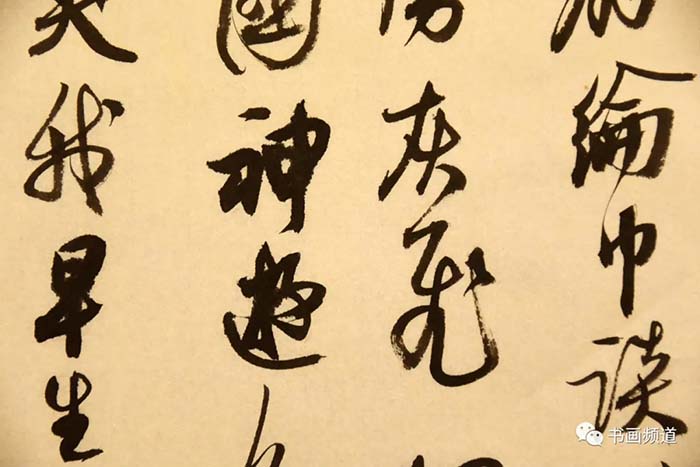 綸巾談
灰飛
國神遊
笑我早生
书画频道